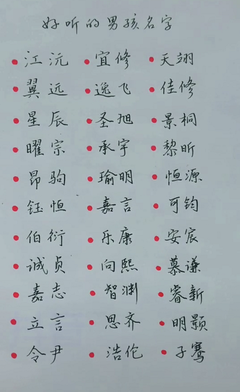 好听的男孩名字
江沅 宜修 天翊
翼远 逸飞 佳修
星辰 圣旭 景桐
曜宗 承宇 黎昕
昂驹 瑜明 恒源
钰恒 嘉言 可钧
伯衍 乐康 安宸
诚贞 向熙 慕谦
嘉志 智渊 睿新
立言 思齐 明颢
令尹 浩伦 子骞